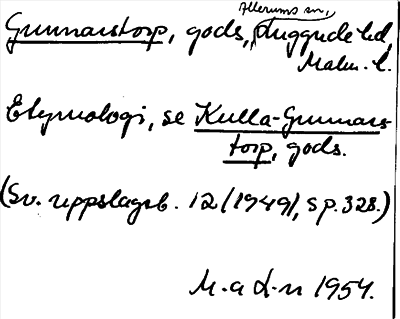 Allerums sn,
Gunnarstorp, gods, Luggude hd,
Malm. l.
Etymologi, se Kulla-Gunnars-
torp, gods.
(Sv. uppslagsb. 12 (1949), sp. 328.)
M. a d-n 1954.